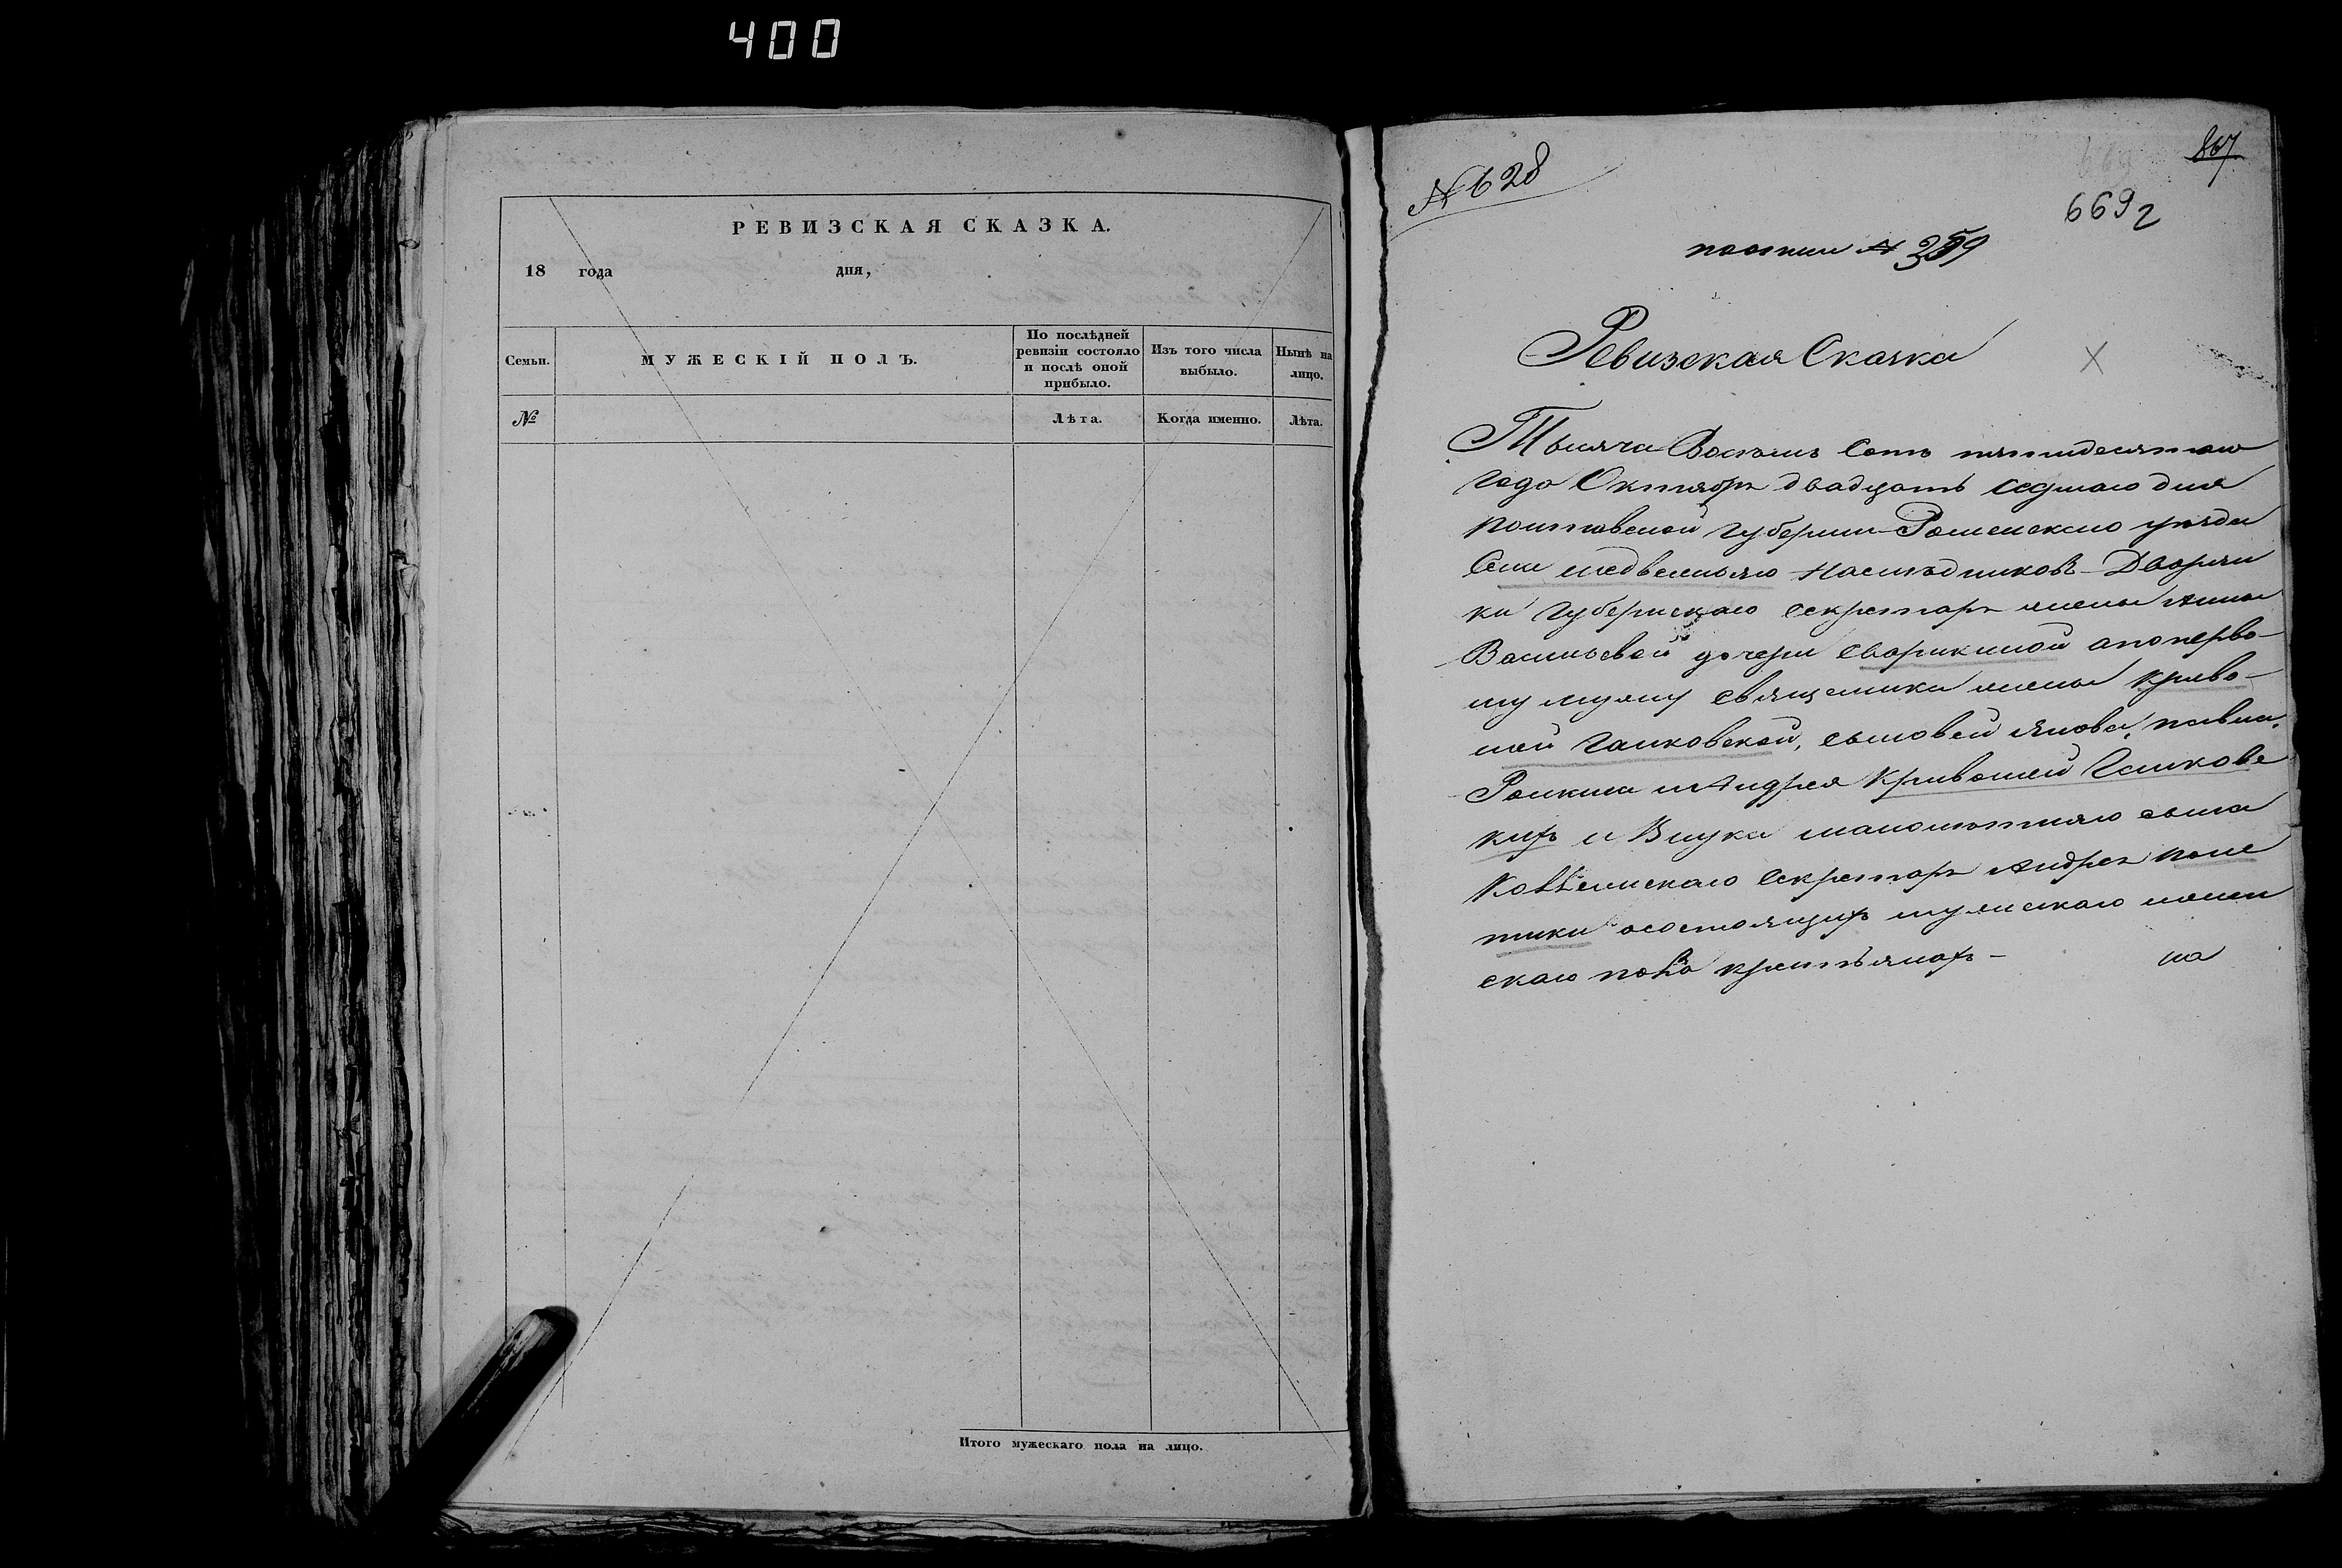 400
РЕВИЗСКАЯ СКАЗКА.
18 года дня,
Семьи.
МУЖЕСКІЙ ПОЛЪ.
По послѣдней ревизіи состояло и послѣ оной прибыло.
Изъ того числа выбыло.
Нынѣ на лицо.
№
Лѣта.
Когда именно.
Лѣта.
Итого мужескаго пола на лицо.
№ 628
867
669
669
Ревизская Сказка
Тысяча Восемь Сотъ пятидесятого
года Октября двадцать седмаго дня
полтавской губернии Роменскаго уѣзда
Села медвежьяго Наслѣдниковъ Дворян
ки губернскаго секретаря жены Анны
Васильевой дочери Сварикиной а по перво-
му мужу священика жены Криво-
шей Галковской, сыновей Якова, павла,
Романа и Андрея Кривошей Галковс
кихъ и Внука малолѣтняго сына
Коллежскаго Секретаря Андрея поле
тики о состоящихъ мужескаго и женск
скаго пола крестьянахъ -
на